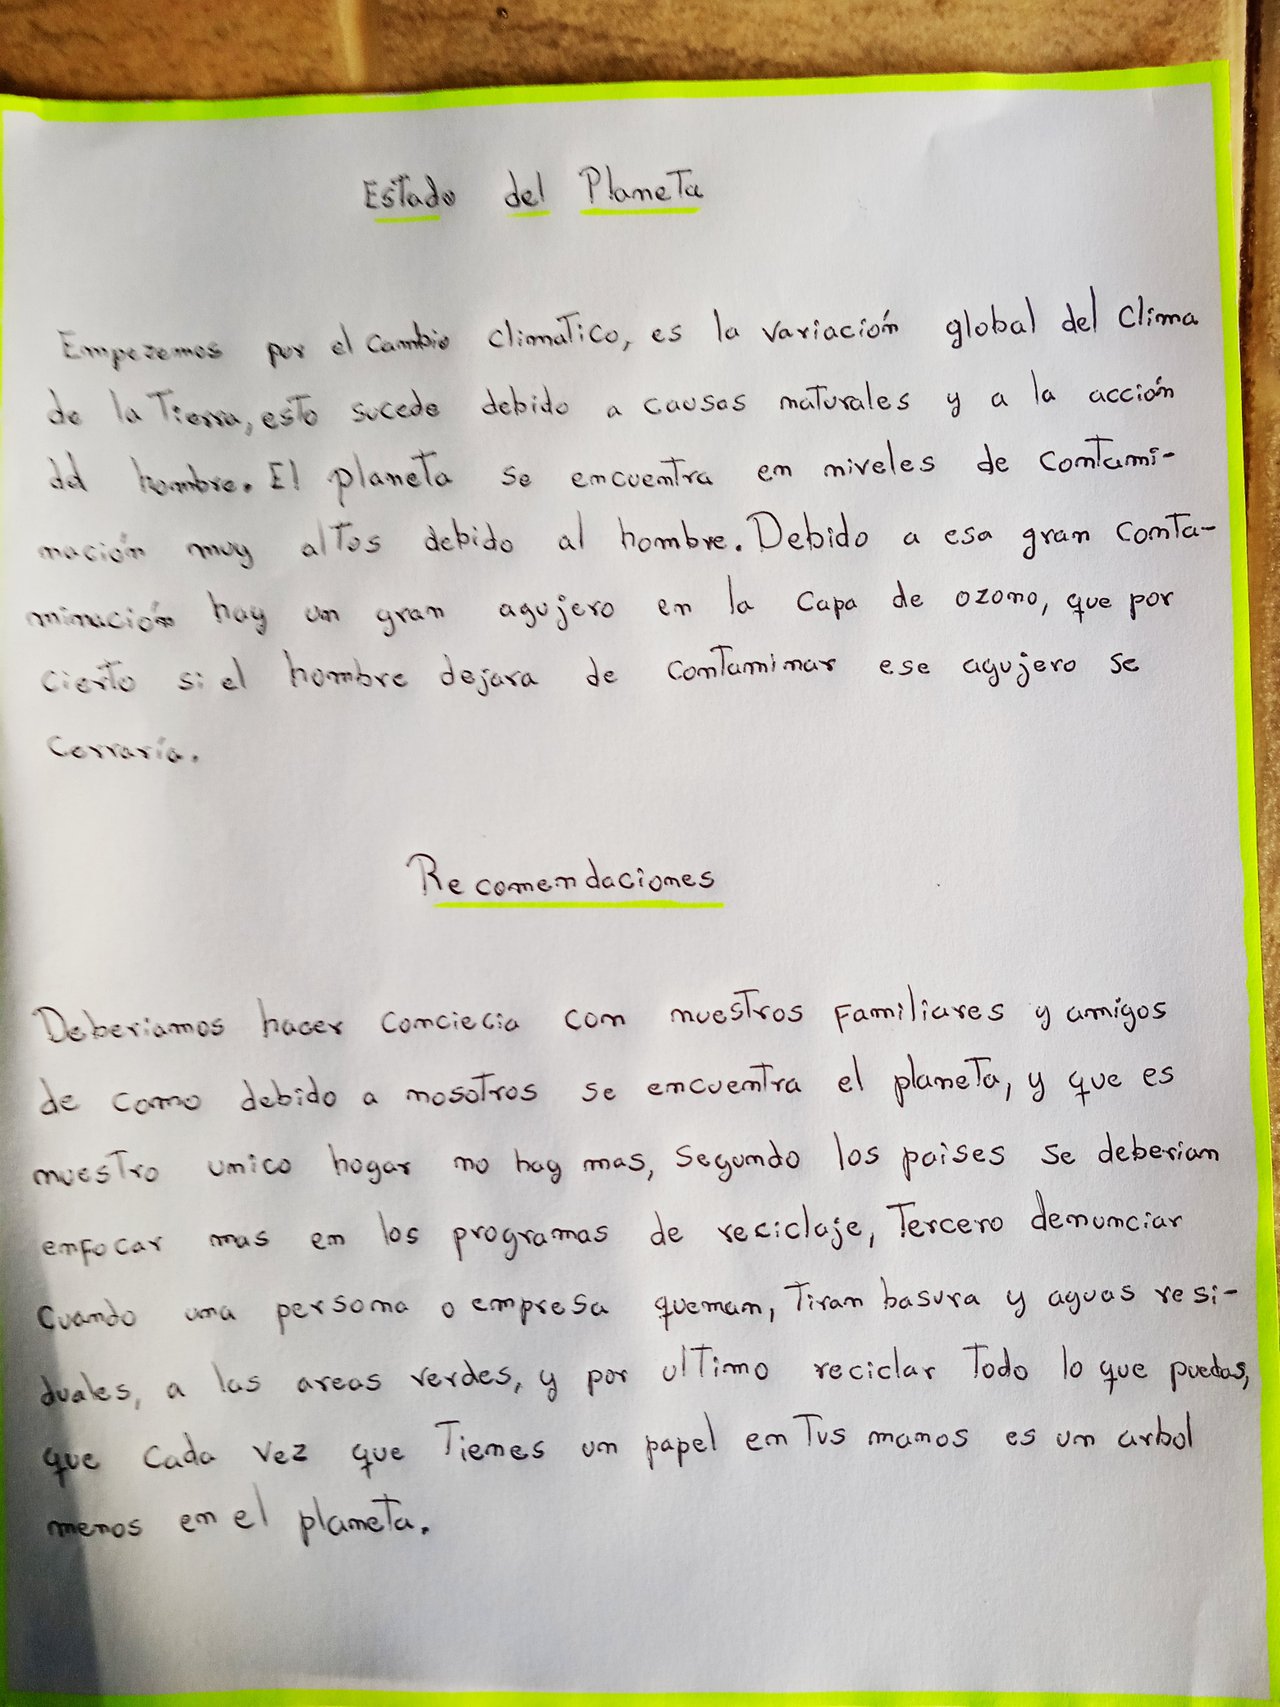 Estado del Planeta
Empezemos por el cambio climatico, es la variación global del clima
de la Tierra, esto sucede debido a causas naturales y a la acción
del hombre. El planeta se encuentra en niveles de contami-
nación muy altos debido al hombre. Debido a esa gran conta-
minación hay un gran agujero en la capa de ozono, que por
cierto si el hombre dejara de contaminar ese agujero se
cerraría.
Recomendaciones
Deberiamos hacer conciecia con nuestros familiares y amigos
de como debido a nosotros se encuentra el planeta, y que es
nuestro unico hogar no hay mas, Segundo los paises se deberian
enfocar mas en los programas de reciclaje, Tercero denunciar
cuando una persona o empresa queman, tiran basura y aguas resi-
duales, a las areas verdes, y por ultimo reciclar todo lo que puedas,
que cada vez que tienes un papel en tus manos es un arbol
menos en el planeta.